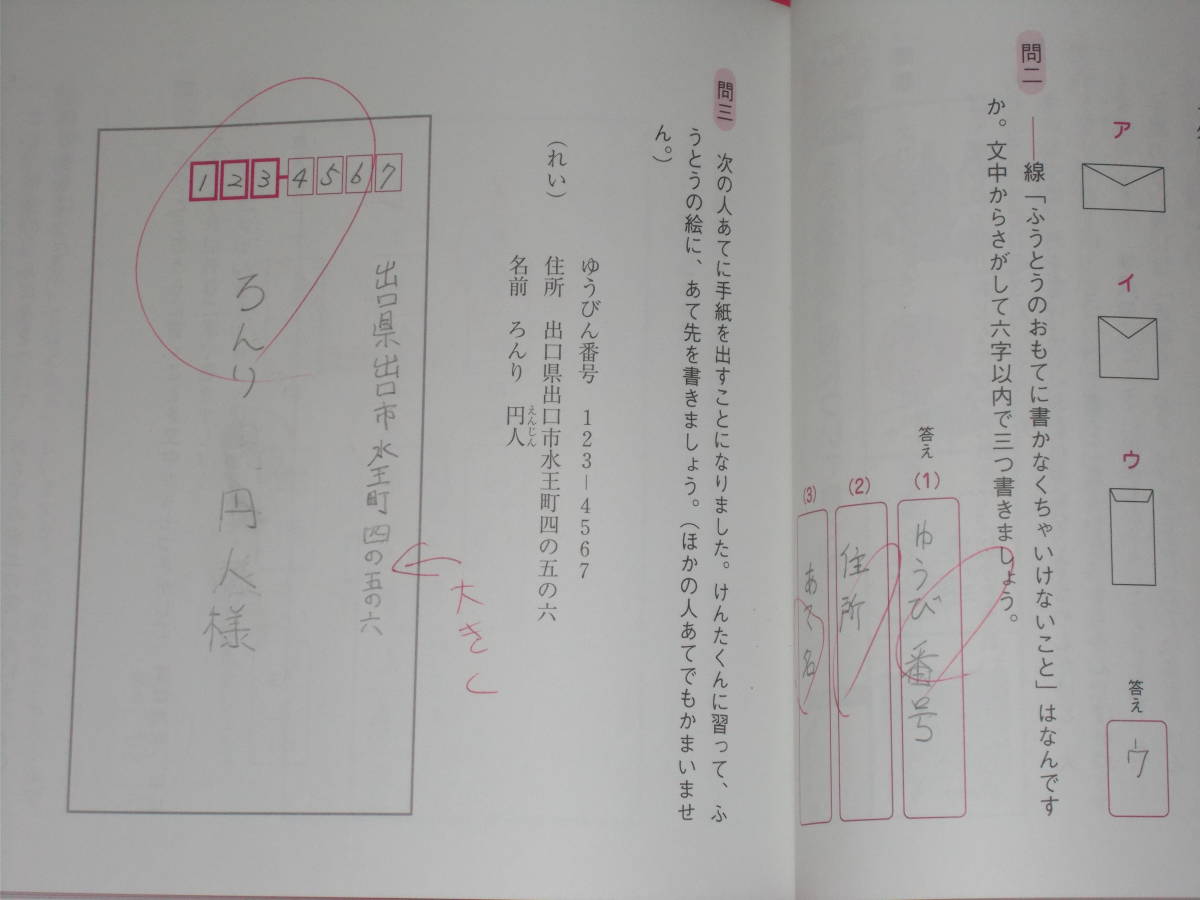 ア
イ
ウ
答え
ウ
問二
――線「ふうとうのおもてに書かなくちゃいけないこと」はなんです
か。文中からさがして六字以内で三つ書きましょう。
答え
(1)
ゆうび番号
(2)
住所
(3)
あて名
問三
次の人あてに手紙を出すことになりました。けんたくんに習って、ふ
うとうの絵に、あて先を書きましょう。(ほかの人あてでもかまいませ
ん。)
(れい)
ゆうびん番号 123-4567
住所 出口県出口市水王町四の五の六
名前 ろんり 円人
えんじん
123-4567
出口県出口市水王町四の五の六
ろんり 円人様
大きく